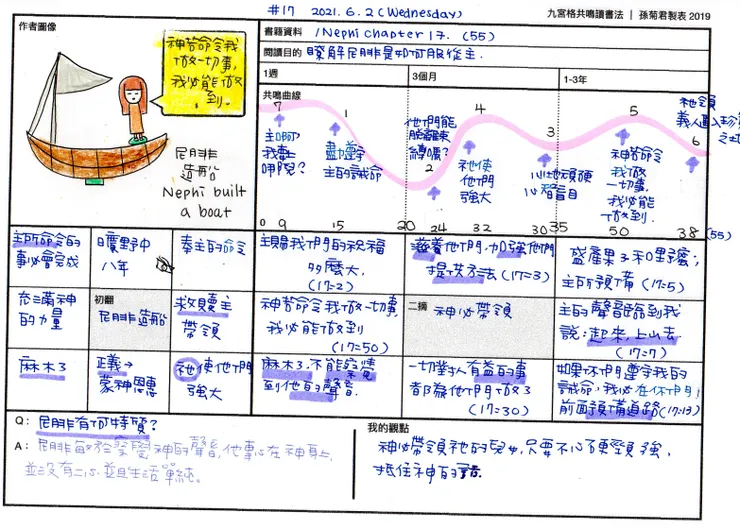 #17 2021.6.2(Wednesday)
九宮格共鳴讀書法 | 孫菊君製表 2019
作者圖像
書籍資料 1Nephi chapter 17. (55)
閱讀目的 瞭解尼腓是如何服從主.
1週
3個月
1-3年
神若命令我
做一切事,
我必能做
到.
尼腓
造船
Nephi built
a boat
共鳴曲線
7
主啊
我去
哪兒?
1
盡遵守
主的誡命
他們能
脫離束
縛嗎?
2
4
祂使
他們
強大
3
心地頑硬
心智盲目
5
神若命令
我做
一切事.
我必能
做到.
祂領
義人進入珍貴
之地
6
0 9 15 20 24 32 30 35 50 38 (55)
主所命令的
事必會完成
曠野中
八年
奉主的命令
充滿神
的力量
初翻
尼腓造船
救贖主
帶領
麻木了
正義→
蒙神恩惠
祂使他們
強大
主賜我們的祝福
多麼大.
(17=2)
滋養他們,加強他們
提供方法 (17=3)
盛產果子和野蜜;
主所預備 (17=5)
神若命令我做一切事,
我必能做到
(17=50)
二摘
神必帶領
主的聲音臨到我
說:起來,上山去.
(17=7)
麻木了.不能感覺
到他的聲音.
一切對人有益的事
都為他們做了
(17=30)
如果你們遵守我的
誡命,我必在你們
前面預備道路(17=13)
Q: 尼腓有何特質?
A: 尼腓敏於感覺神的聲音,他專心在神身上,
並沒有二心.並且生活單純。
我的觀點
神必帶領祂的兒女,只要不心硬頸強,
抵住神的話.